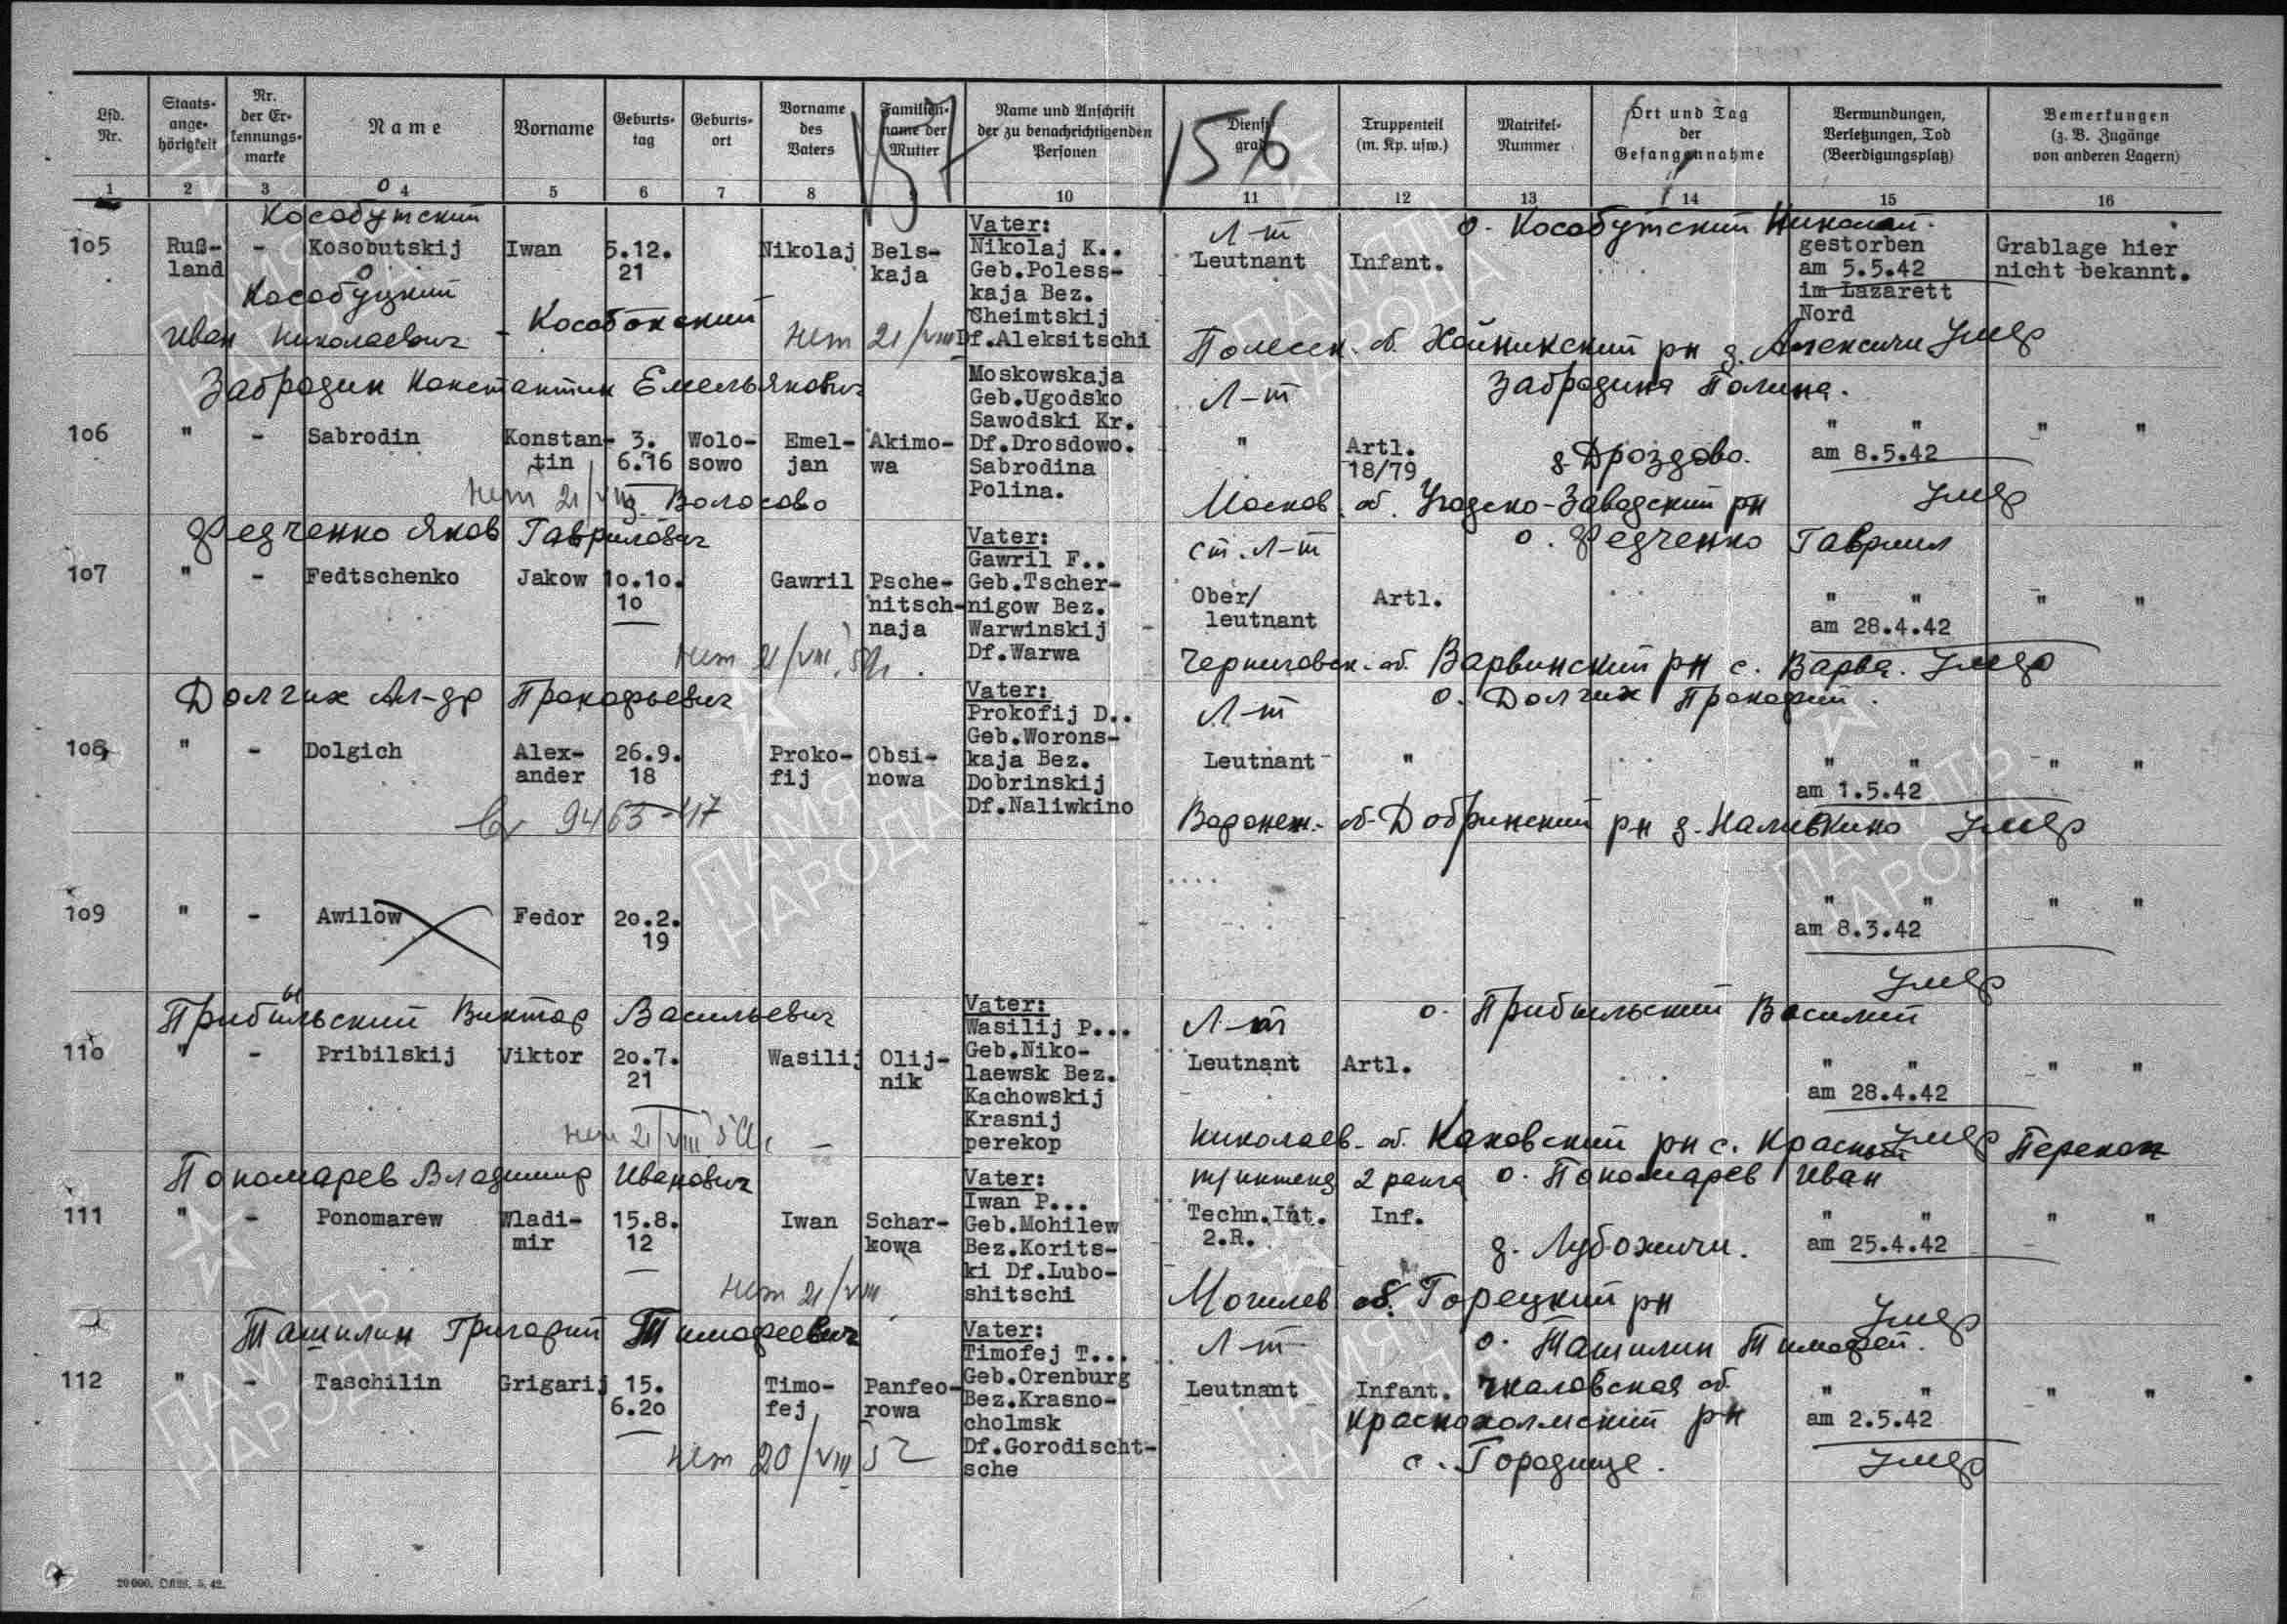 157
156
Lfd. Nr.
Staats-angehörigkeit
Nr. der Erkennungs-marke
Name
Vorname
Geburts-tag
Geburts-ort
Vorname des Vaters
Familien-name der Mutter
Name und Anschrift der zu benachrichtigenden Personen
Dienst-grad
Truppenteil (m. Kp. usw.)
Matrikel-Nummer
Ort und Tag der Gefangennahme
Verwundungen, Verletzungen, Tod (Beerdigungsplatz)
Bemerkungen (z. B. Zugänge von anderen Lagern)
1 2 3 4 5 6 7 8 9 10 11 12 13 14 15 16
Кособутский
Л-т
о. Кособутский Николай.
105 Rußland - Kosobutskij Iwan 5.12.21 Nikolaj Belskaja
Vater:
Nikolaj K..
Geb.Poless-
kaja Bez.
Cheimtskij
Df.Aleksitschi
Leutnant Infant.
gestorben
am 5.5.42
im Lazarett
Nord
Grablage hier
nicht bekannt.
Кособуцкий
Иван Николаевич - Кособокский
нет 21/VIII
Полесск. об. Хойникский рн д. Алексичи Умер
Забродин Константин Емельянович
Л-т
Забродина Полина.
106 " - Sabrodin Konstantin 3.6.16 Wolosowo Emeljan Akimowa
Moskowskaja
Geb.Ugodsko
Sawodski Kr.
Df.Drosdowo.
Sabrodina
Polina.
" Artl.
18/79
" "
am 8.5.42
" "
д. Дроздово.
нет 21/VIII д. Волосово
Москов. об. Угодско-Заводский рн
Умер
Федченко Яков Гаврилович
ст. Л-т
о. Федченко Гавриил
107 " - Fedtschenko Jakow 10.10.10 Gawril Pschenitschnaja
Vater:
Gawril F..
Geb.Tscher-
nigow Bez.
Warwinskij
Df.Warwa
Ober/
leutnant
Artl.
" "
am 28.4.42
" "
нет 21/VIII
Черниговск. об. Варвинский рн с. Варва. Умер
Долгих Ал-др Прокофьевич
Л-т
о. Долгих Прокофий.
108 " - Dolgich Alexander 26.9.18 Prokofij Obsinowa
Vater:
Prokofij D..
Geb.Worons-
kaja Bez.
Dobrinskij
Df.Naliwkino
Leutnant "
" "
am 1.5.42
" "
9463-47
Воронеж. об. Добринский рн д. Наливкино Умер
109 " - Awilow Fedor 20.2.19
" "
am 8.3.42
" "
Умер
Прибыльский Виктор Васильевич
Л-т
о. Прибыльский Василий
110 " - Pribilskij Viktor 20.7.21 Wasilij Olijnik
Vater:
Wasilij P...
Geb.Niko-
laewsk Bez.
Kachowskij
Krasnij
perekop
Leutnant Artl.
" "
am 28.4.42
" "
нет 21/VIII
Николаев. об. Каховский рн с. Красный Перекоп
Умер
Пономарев Владимир Иванович
т/интенд 2 ранга о. Пономарев Иван
111 " - Ponomarew Wladimir 15.8.12 Iwan Scharkowa
Vater:
Iwan P...
Geb.Mohilew
Bez.Korits-
ki Df.Lubo-
shitschi
Techn.Int.
2.R.
Inf.
" "
am 25.4.42
" "
д. Лубожичи.
нет 21/VIII
Могилев об. Горецкий рн
Умер
Ташилин Григорий Тимофеевич
Л-т
о. Ташилин Тимофей.
112 " - Taschilin Grigarij 15.6.20 Timofej Panfeorowa
Vater:
Timofej T...
Geb.Orenburg
Bez.Krasno-
cholmsk
Df.Gorodischt-
sche
Leutnant Infant.
" "
am 2.5.42
" "
Чкаловская об.
Краснохолмский рн
с. Городище.
нет 20/VIII 52
Умер
ПАМЯТЬ НАРОДА